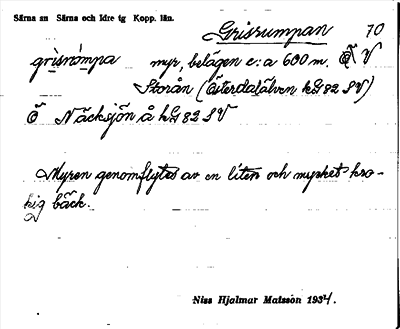 Särna sn Särna och Idre tg Kopp. län.
Grisrumpan 70
grìsròmpa myr, belägen c:a 600 m. Ö V
Storån (Österdalälven kG 82 SV)
Ö Näcksjön å kG 82 SV
Myren genomflytes av en liten och mycket kro-
kig bäck.
Niss Hjalmar Matsson 1934.